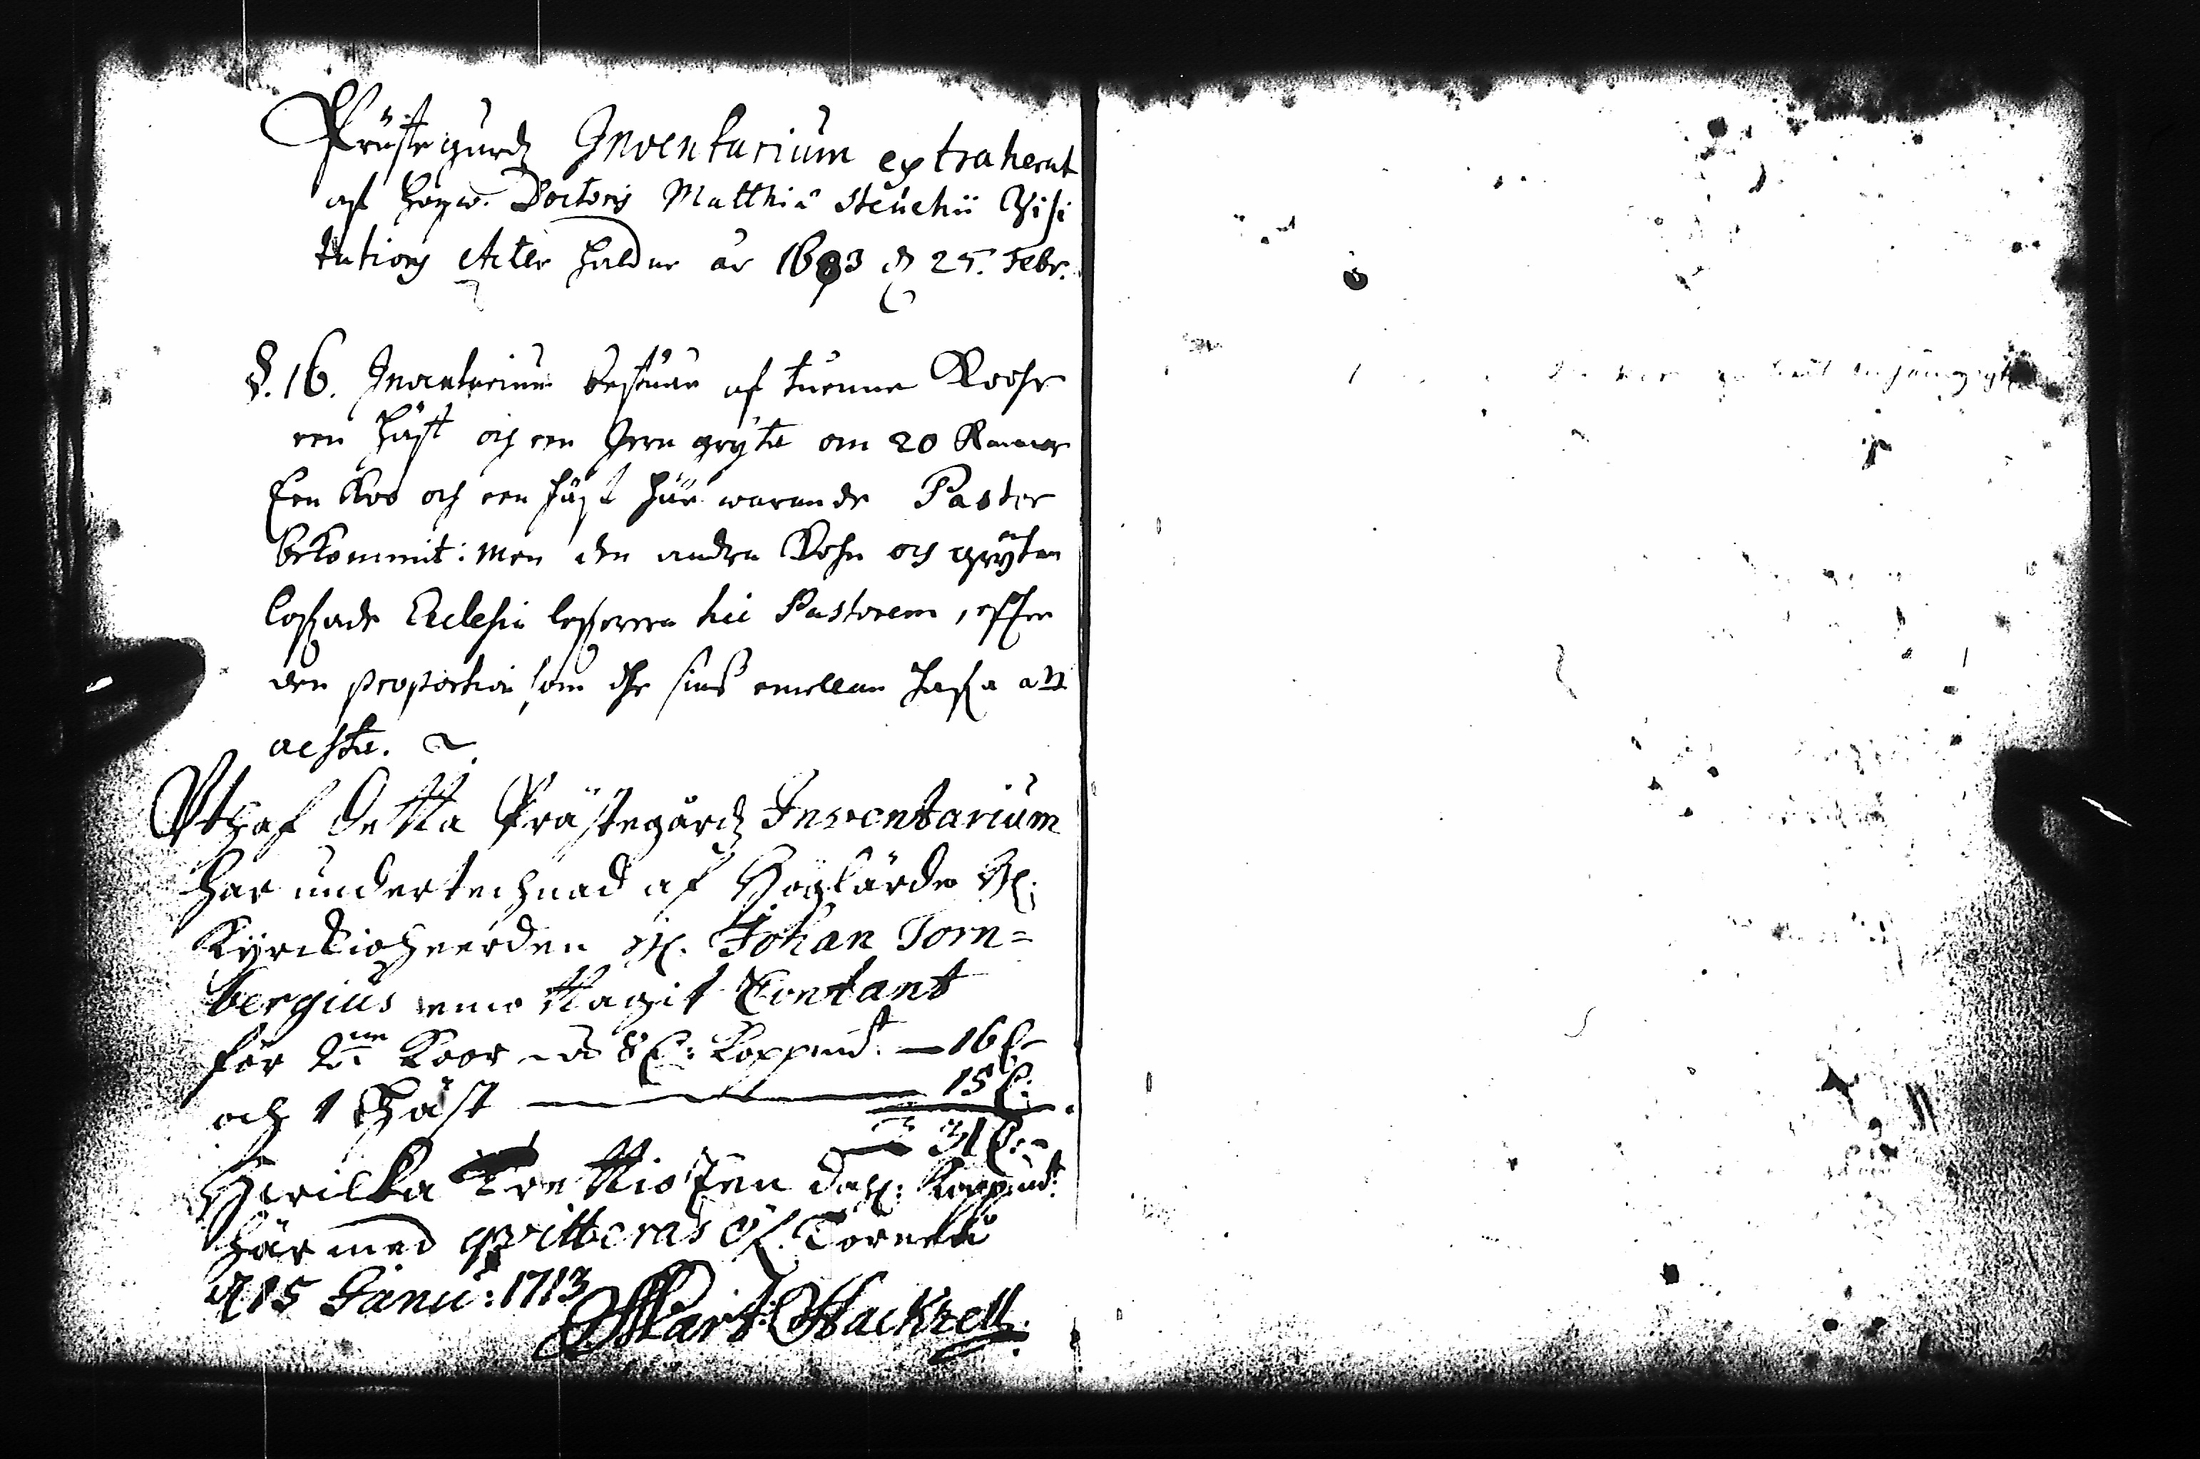 Prästegårdz Inventarium extraherat
af högw. Doctoris Matthiæ Steuchii Visi
tations Acter håldne år 1693 d 25. Febr.
§. 16. Inventarium bestuar af tuenne Koohr
een häst och een Jern gryta om 20 Kannor
Een Koo och een häst hår warande Pastor
bekommit: men den andra Kohn och grytan
lofwade Ecclesiæ lefwerera hic Pastorem, efter
den proportion som the sins emellan hafwa att
aesta.
Uthaf detta Prästegårdz Inventarium
har undertechnad af Höglärde H:
Kyrckioheerden H. Johan Torn=
bergius emottagit Contant
för 2ne Koor a 8 D: Koppmt. — 16 D
och 1 Häst — 15 D:
31 D:-
Hwilka Trettio En dahl: Koppmt:
här med qvitteras Öf. Torneå
d 15 Janu: 1713
Mart. Hackzell